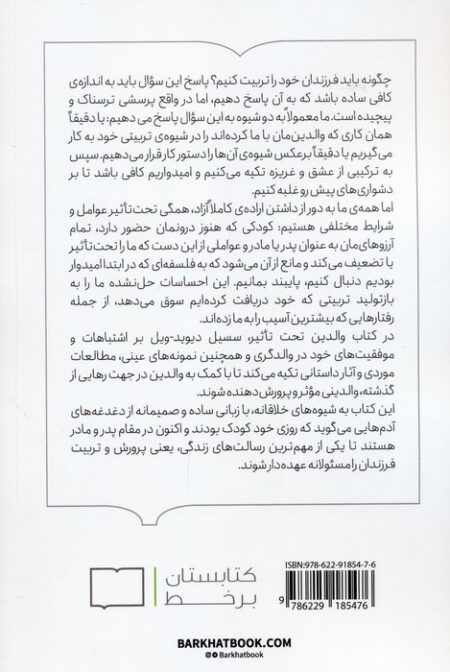 چگونه باید فرزندان خود را تربیت کنیم؟ پاسخ این سؤال باید به اندازه‌ی
کافی ساده باشد که به آن پاسخ دهیم، اما در واقع پرسشی ترسناک و
پیچیده است. ما معمولاً به دو شیوه به این سؤال پاسخ می دهیم: یا دقیقاً
همان کاری که والدین‌مان با ما کرده‌اند را در شیوه‌ی تربیتی خود به کار
می‌گیریم یا دقیقاً برعکس شیوه‌ی آن‌ها را دستور کار قرار می‌دهیم. سپس
به ترکیبی از عشق و غریزه تکیه می‌کنیم و امیدواریم کافی باشد تا بر
دشواری‌های پیش رو غلبه کنیم.
اما همه‌ی ما به دور از داشتن اراده‌ی کاملاً آزاد، همگی تحت‌تأثیر عوامل و
شرایط مختلفی هستیم: کودکی که هنوز درونمان حضور دارد، تمام
آرزوهای‌مان به عنوان پدر یا مادر و عواملی از این دست که ما را تحت‌تأثیر
یا تضعیف می‌کند و مانع از آن می‌شود که به فلسفه‌ای که در ابتدا امیدوار
بودیم دنبال کنیم، پایبند بمانیم. این احساسات حل‌نشده ما را به
بازتولید تربیتی که خود دریافت کرده‌ایم سوق می‌دهد، از جمله
رفتارهایی که بیشترین آسیب را به ما زده‌اند.
در کتاب والدین تحت تأثیر، سسیل دیوید-ویل بر اشتباهات و
موفقیت‌های خود در والدگری و همچنین نمونه‌های عینی، مطالعات
موردی و آثار داستانی تکیه می‌کند تا با کمک به والدین در جهت رهایی از
گذشته، والدینی مؤثر و پرورش‌دهنده شوند.
این کتاب به شیوه‌های خلاقانه، با زبانی ساده و صمیمانه از دغدغه‌های
آدم‌هایی می‌گوید که روزی خود کودک بودند و اکنون در مقام پدر و مادر
هستند تا یکی از مهم‌ترین رسالت‌های زندگی، یعنی پرورش و تربیت
فرزندان را مسئولانه عهده‌دار شوند.
کتابستان
برخط
ISBN: 978-622-91854-7-6
9 786229 185476
BARKHATBOOK.COM
Barkhatbook